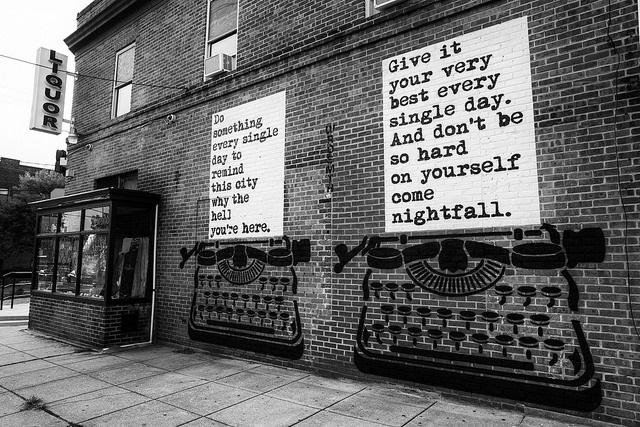 LIQUOR
Do
something
every single
day to
remind
this city
why the
hell
you're here.
Give it
your very
best every
single day.
And don't be
so hard
on yourself
come
nightfall.